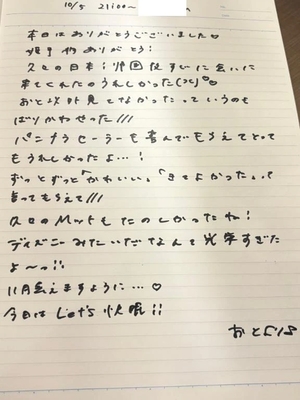 10/5 21:00~
本日はありがとうございました♡
差し入れありがとう!
久々の日本!帰国後すぐに会いに
来てくれたのうれしかった(>_<)♡
おと以外見てなかったっていうのも
ばりかわせった///
パンプラセーラーも喜んでもらえてとって
もうれしかったよ…!
ずっとずっと「かわいい」「きてよかった」って
言ってもらえて///
久々のMットもたのしかったね!
ディズニーみたいだなんて光栄すぎた
よ〜っ!!
11月会えますように…♡
今日はLet's 快眠!!